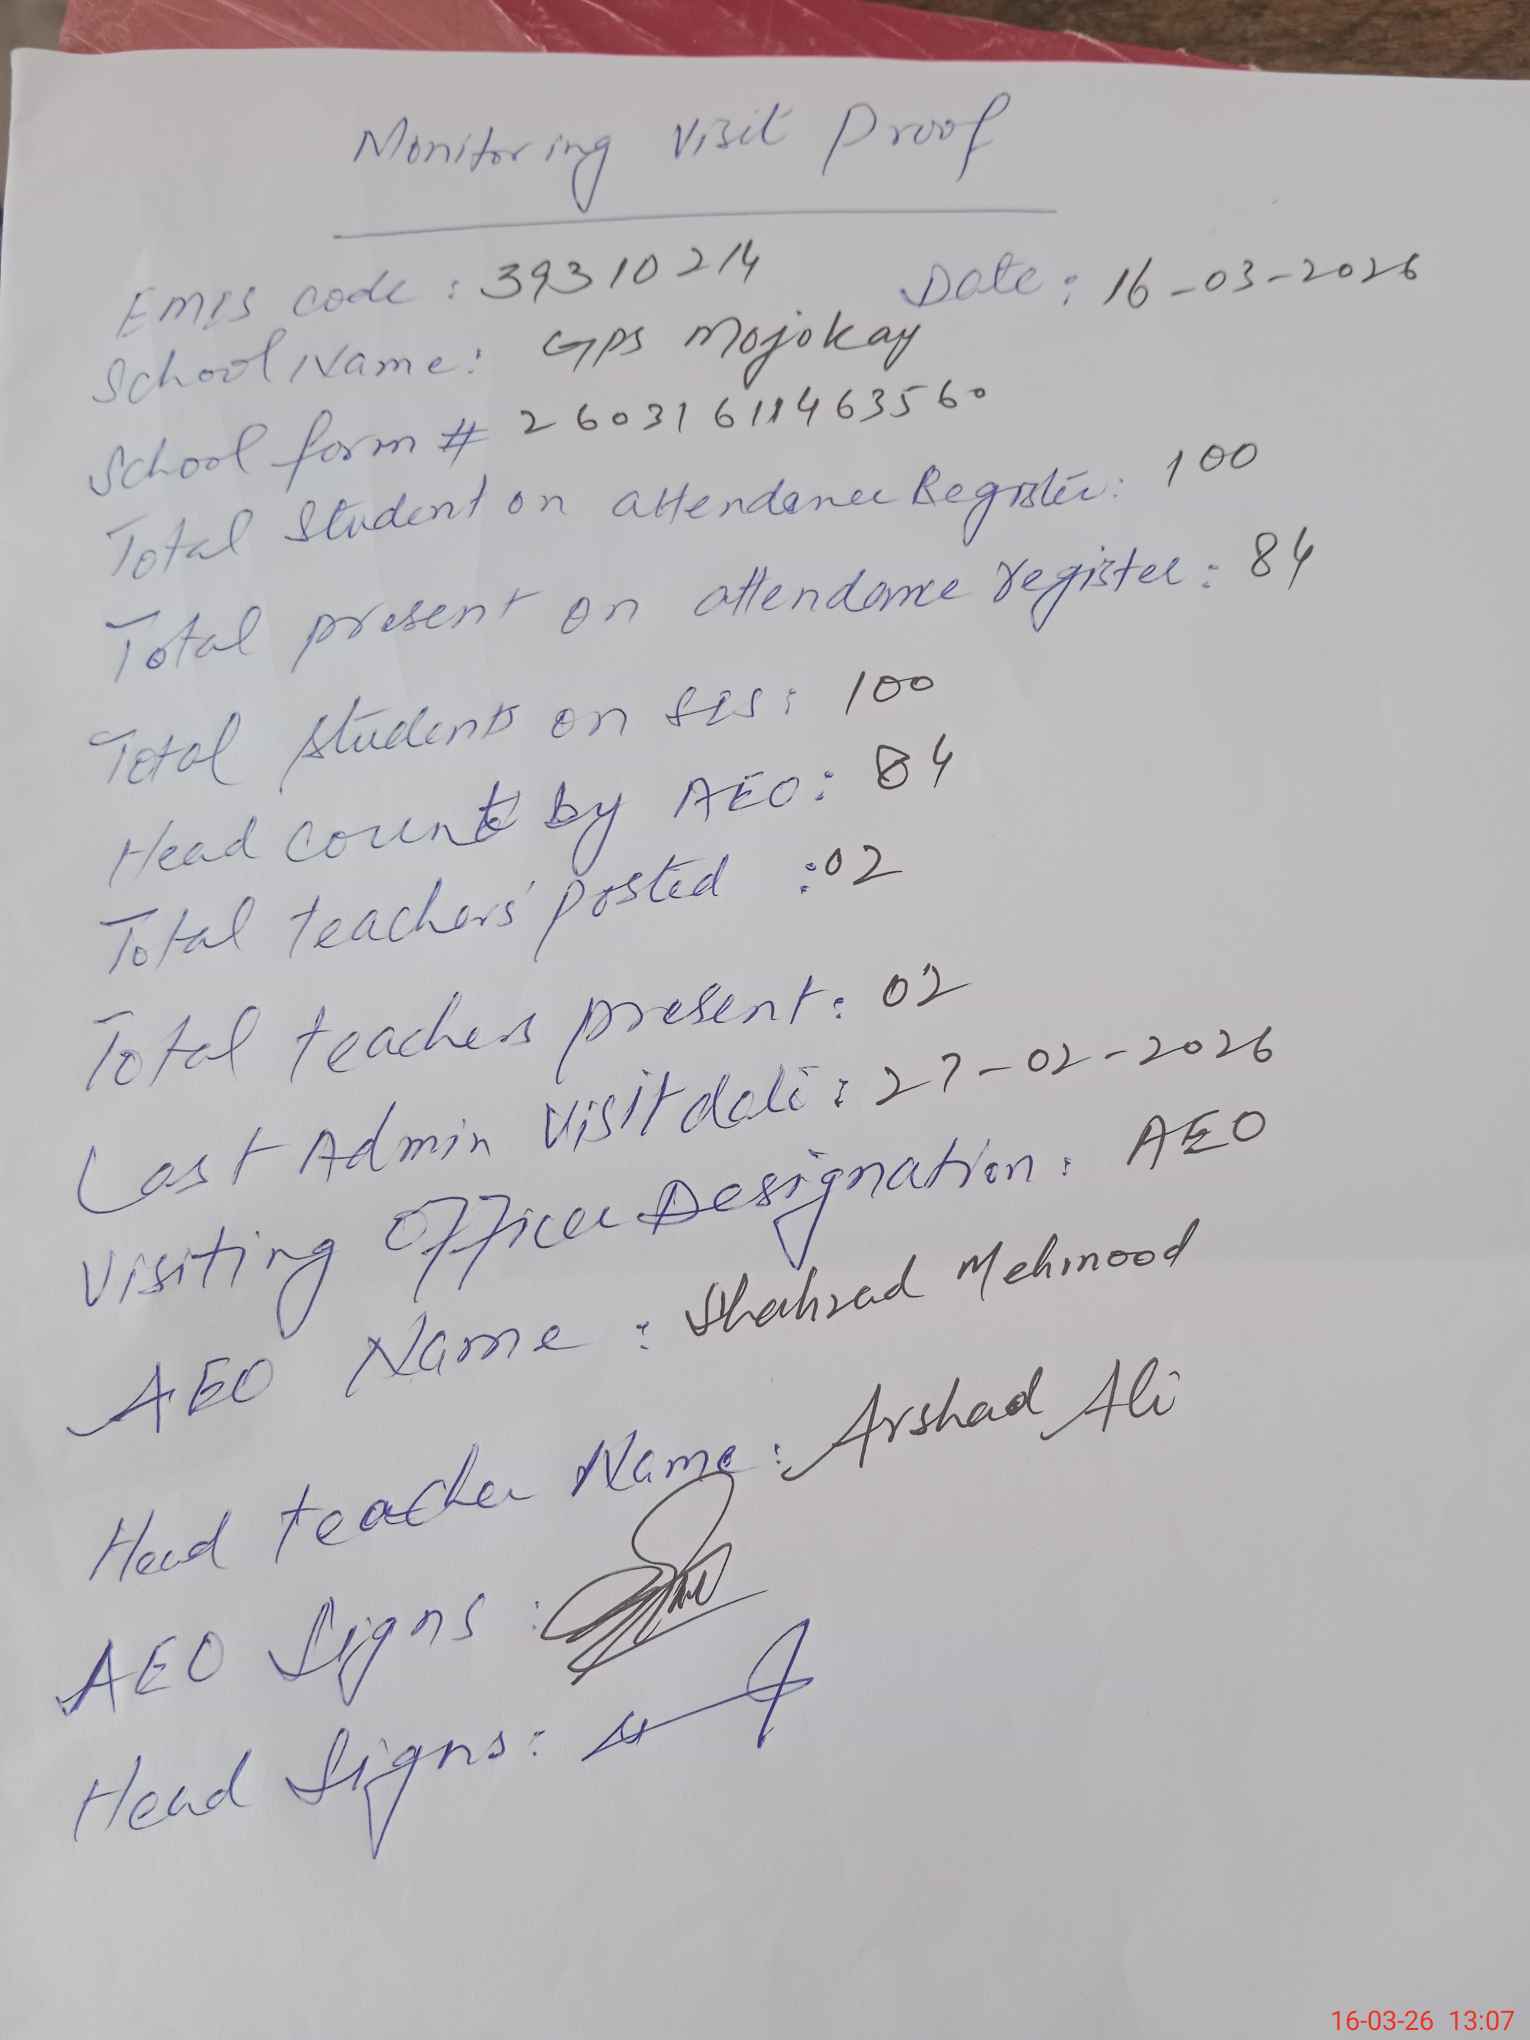 Monitoring Visit Proof
EMIS code : 39310214 Date : 16-03-2026
School Name : GPS Mojokay
School form # 26031611463560
Total Student on attendance Register : 100
Total present on attendance register : 84
Total students on SIS : 100
Head count by AEO : 84
Total teachers' posted : 02
Total teachers present : 02
Last Admin Visit date : 27-02-2026
Visiting Officer Designation : AEO
AEO Name : Shahzad Mehmood
Head teacher Name : Arshad Ali
AEO Signs :
Head Signs :
16-03-26 13:07